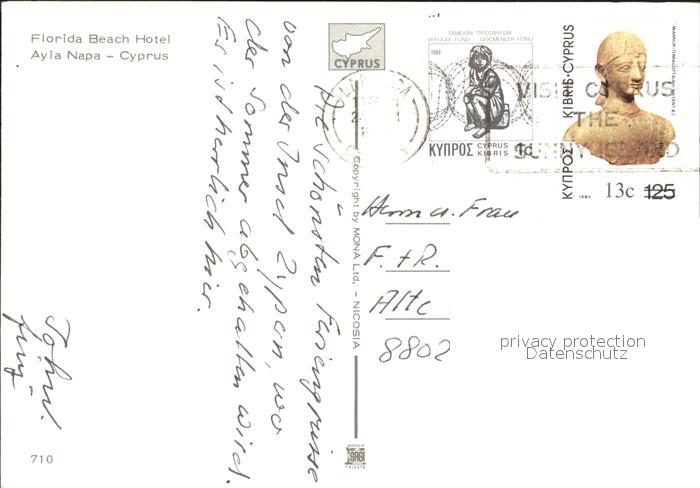 Florida Beach Hotel
Ayia Napa – Cyprus
CYPRUS
ΤΑΜΕΙΟΝ ΠΡΟΣΦΥΓΩΝ
REFUGEE FUND GÖÇMENLER FONU
1984
ΚΥΠΡΟΣ CYPRUS KIBRIS 1c
KIBRIS·CYPRUS
ΚΥΠΡΟΣ
1980
13c 125
VISIT CYPRUS
THE
SUNNY ISLAND
Die schönsten Feriengrüsse
von der Insel Zypern, wo
der Sommer abgehalten wird.
Es ist herrlich hier.
Copyright by MONA Ltd. – NICOSIA
Herrn u. Frau
F. + R.
Alte
8802
privacy protection
Datenschutz
710
SAGI
TRIESTE